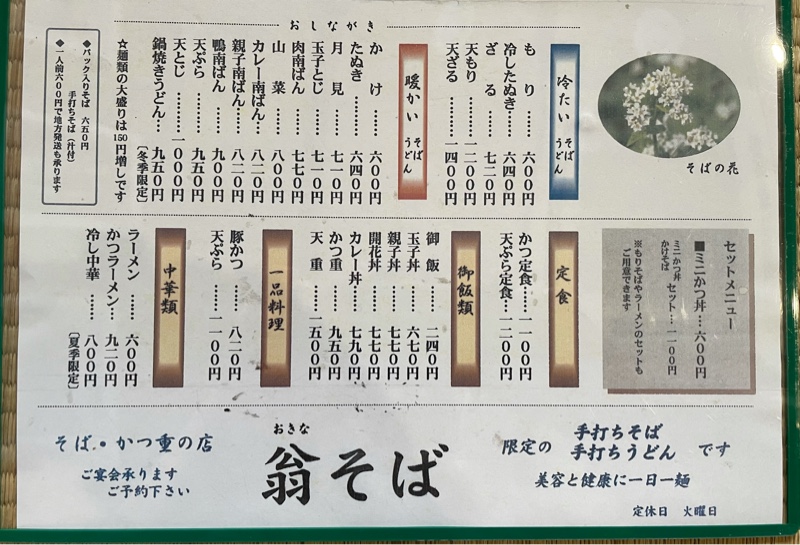 おしながき
そばの花
冷たい そば うどん
もり………六〇〇円
冷したぬき……六四〇円
ざる………七二〇円
天もり……一二〇〇円
天ざる……一四〇〇円
暖かい そば うどん
かけ………六〇〇円
たぬき……六四〇円
月見………七一〇円
玉子とじ……七一〇円
肉南ばん……七七〇円
山菜………八〇〇円
カレー南ばん……八二〇円
親子南ばん……八二〇円
鴨南ばん……九〇〇円
天ぷら……九五〇円
天とじ……一〇〇〇円
鍋焼きうどん…九五〇円
〔冬季限定〕
☆麺類の大盛りは150円増しです
◆パック入りそば 六五〇円
手打ちそば(汁付)
◆一人前六〇〇円で地方発送も承ります
セットメニュー
■ミニかつ丼…六〇〇円
ミニかつ丼
かけそば
セット…一一〇〇円
※もりそばやラーメンのセットも
ご用意できます
定食
かつ定食……一一〇〇円
天ぷら定食…一二〇〇円
御飯類
御飯……二四〇円
玉子丼……六七〇円
親子丼……七七〇円
開花丼……七七〇円
カレー丼……七九〇円
かつ重……九五〇円
天重……一五〇〇円
一品料理
豚かつ……八二〇円
天ぷら……一一〇〇円
中華類
ラーメン……六〇〇円
かつラーメン…九二〇円
冷し中華……八〇〇円
〔夏季限定〕
そば・かつ重の店
ご宴会承ります
ご予約下さい
おきな
翁そば
限定の 手打ちそば 手打ちうどん です
美容と健康に一日一麺
定休日 火曜日